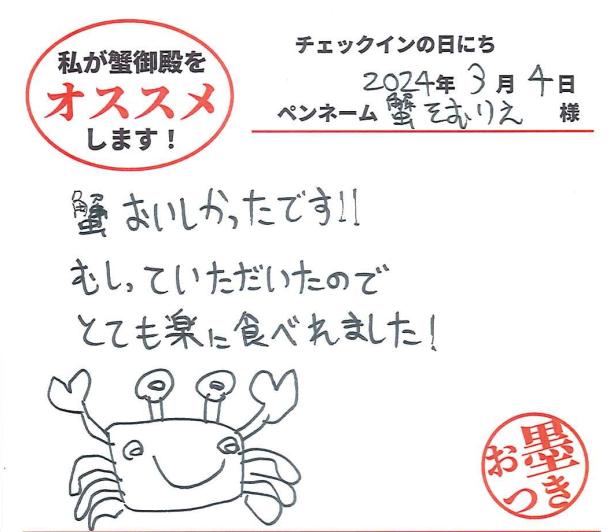 私が蟹御殿を
オススメ
します！
チェックインの日にち
2024年 3月 4日
ペンネーム 蟹そむりえ 様
蟹おいしかったです!!
むしっていただいたので
とても楽に食べれました!
お墨つき